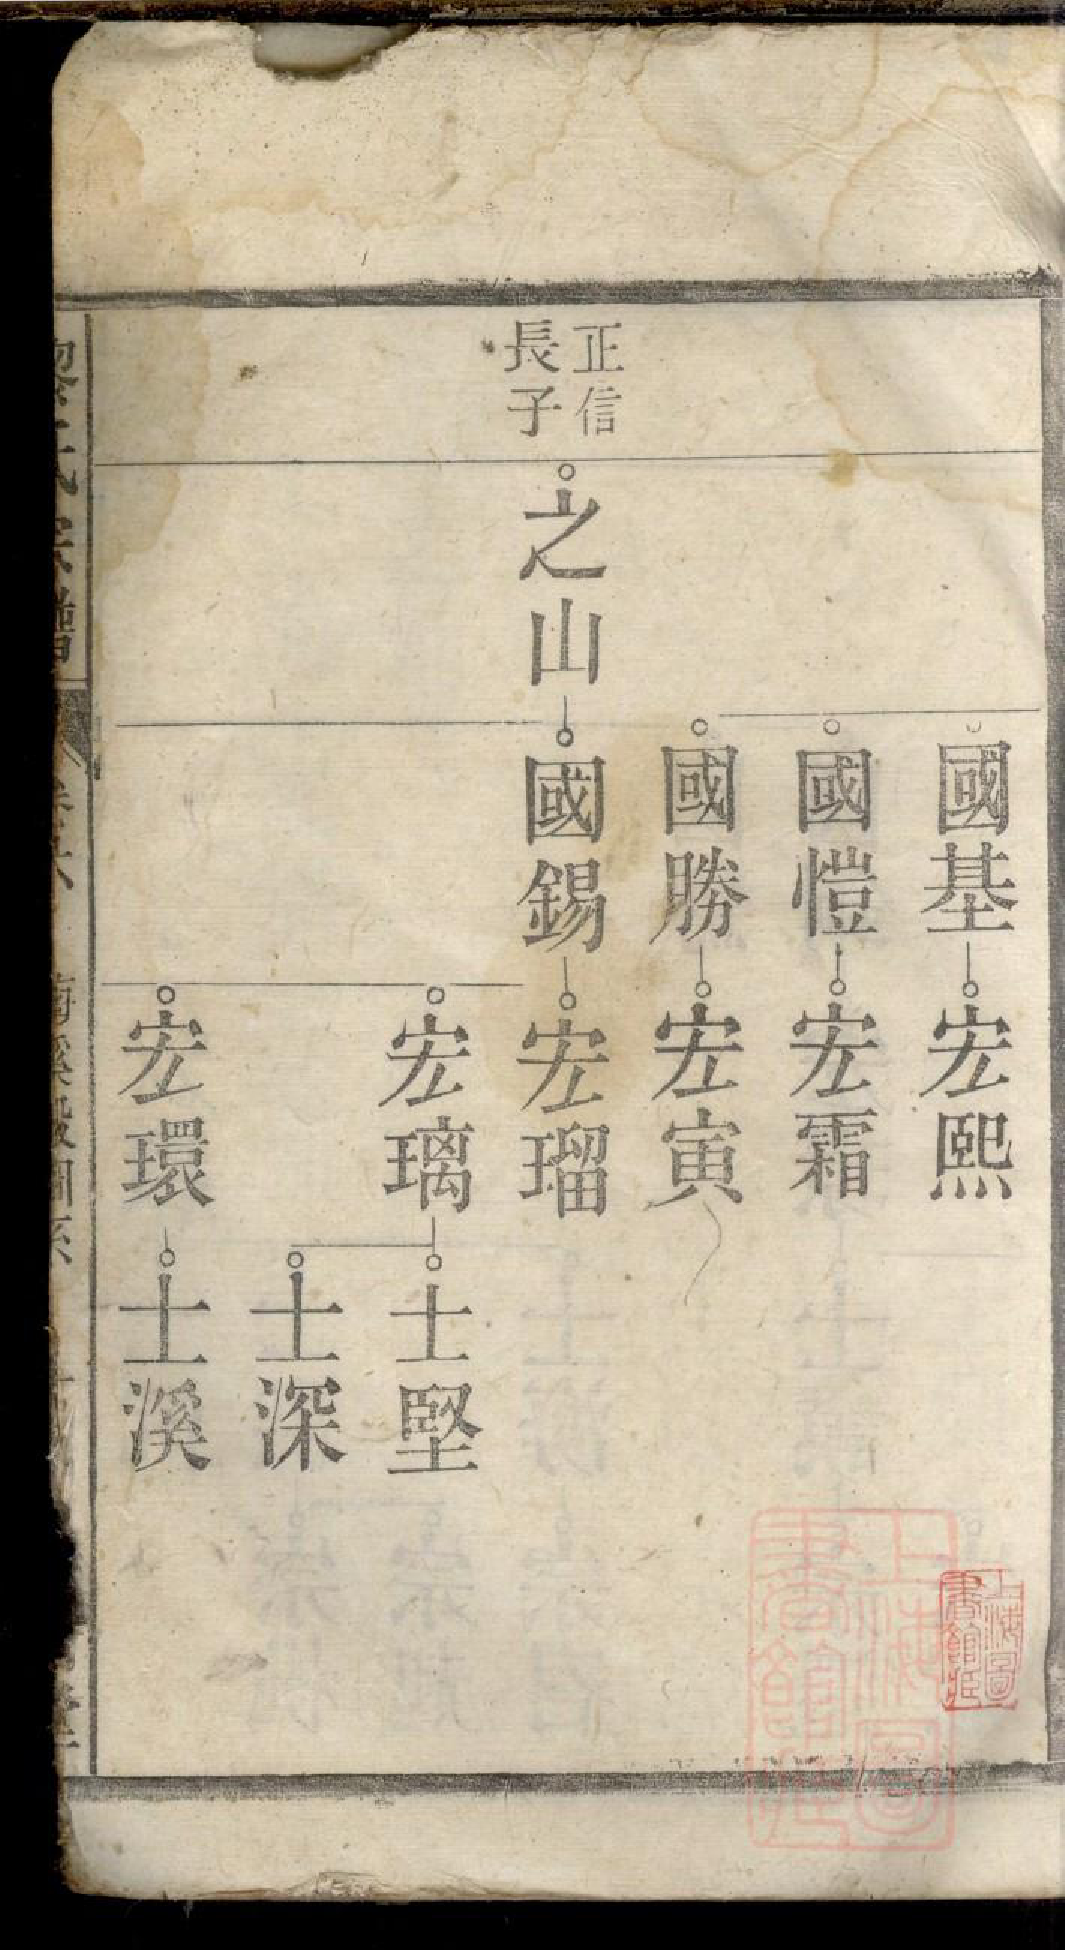 國基
宏熙
國愷
宏霜
國勝
宏寅
正信
長子
之山
國錫
宏瑠
宏璃
士堅
士深
宏環
士溪
氏宗譜
上海圖
書館藏
上海圖
書館藏